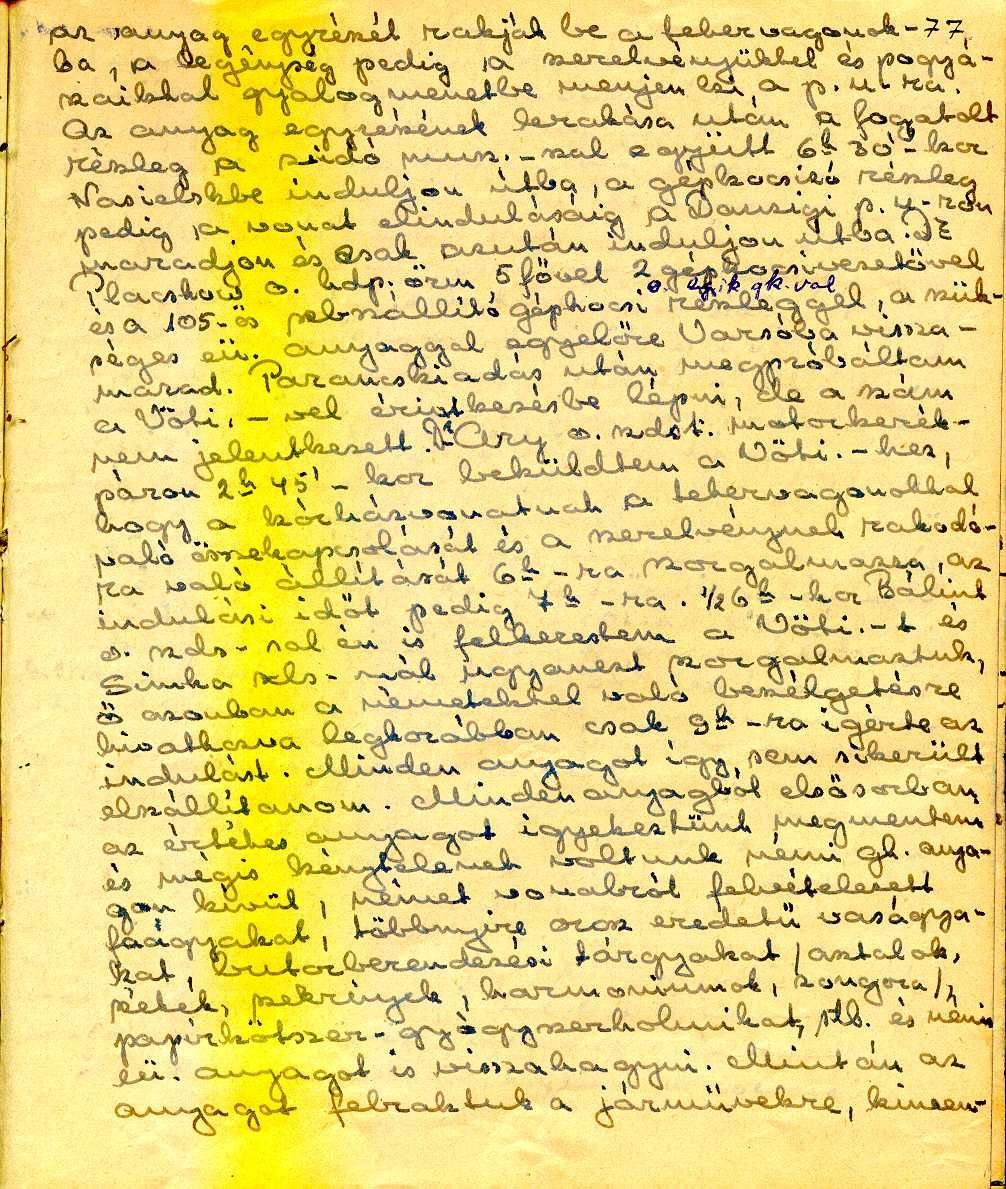 az anyag egyrészét rakják be a tehervagonok- 77
ba, a legénység pedig a szerelvényükkel és pogyá-
szaikkal gyalogmenetbe menjen ki a p. u-ra.
Az anyag egyrészének lerakása után a fogatolt
részleg a südő mun.-sal együtt 6h 30'-kor
Nasielskbe induljon útba, a gépkocsizó részleg
pedig a vonat elindulásáig a Danzigi p. u-ron
maradjon és csak azután induljon útba. Dr
Placskow o. hdp. őrm 5 fővel 2 gépkocsivezetővel
o. lgik gk.-val
és a 105-ös sebszállító gépkocsi részleggel, a szük-
séges eü. anyaggal egyelőre Varsóba vissza-
marad. Parancskiadás után megpróbáltam
a Vöti.-vel érintkezésbe lépni, de a szám
nem jelentkezett. Dr Ary o. zdst. motorkerék-
páron 2h 45'-kor beküldtem a Vöti.-hez,
hogy a kórházvonatnak a tehervagonokkal
való összekapcsolását és a szerelvénynek rakodó-
ra való állítását 6h-ra szorgalmazza, az
indulási időt pedig 7h-ra. 1/26h-kor Bálint
o. zds-sal én is felkerestem a Vöti.-t és
Simka szls-nál ugyanezt szorgalmaztuk,
ő azonban a németekkel való beszélgetésre
hivatkozva legkorábban csak 9h-ra igérte az
indulást. Minden anyagot így sem sikerült
elszállítanom. Minden anyagból elsősorban
az értékes anyagot igyekeztünk megmenteni
és mégis kénytelenek voltunk némi gh. anya-
gon kívül, német vonalról felvételezett
faágyakat, többnyire orosz eredetű vaságya-
kat, butorberendezési tárgyakat /asztalok,
székek, szekrények, harmoniumok, zongora/,
papírkötszer-gyógyszerholmikat, stb. és némi
eü. anyagot is visszahagyni. Miután az
anyagot felraktuk a járművekre, kimen-